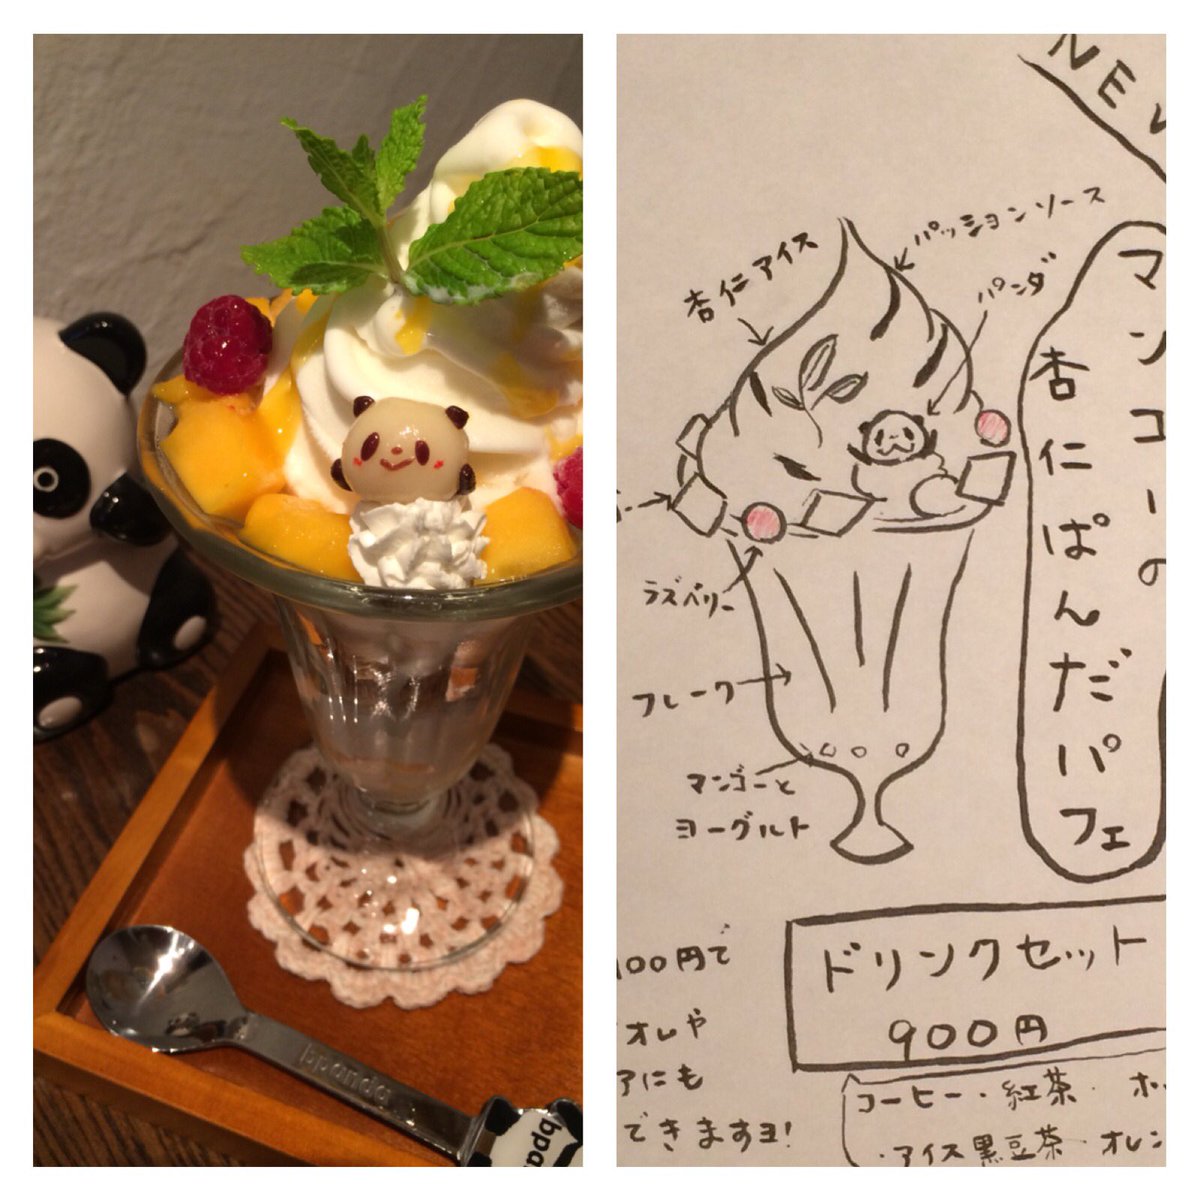 NEW
パッションソース
杏仁アイス
パンダ
マンゴーの
杏仁ぱんだパフェ
ラズベリー
フレーク
マンゴーと
ヨーグルト
ドリンクセット
900円
100円で
オレや
アにも
できますヨ!
コーヒー・紅茶・ホッ
・アイス黒豆茶・オレン
panda